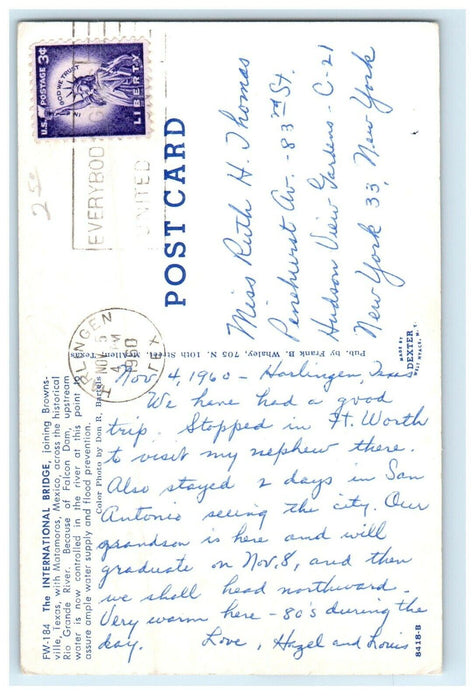 U.S. POSTAGE 3¢
IN GOD WE TRUST
LIBERTY
EVERYBOD
UNITED
HARLINGEN
NOV 5
4 PM
1960
TEX
POST CARD
Miss Ruth H. Thomas
Pinehurst Av. - 83rd St.
Hudson View Gardens - C-21
New York 33, New York
Pub. by Frank B. Whaley, 702 N. 10th Street, McAllen, Texas
MADE BY
DEXTER
WEST NYACK, N. Y.
Nov. 4, 1960 - Harlingen, Texas
We have had a good
trip. Stopped in Ft. Worth
to visit my nephew there.
Also stayed 2 days in San
Antonio seeing the city. Our
grandson is here and will
graduate on Nov. 8, and then
we shall head northward.
Very warm here - 80's during the
day. Love, Hazel and Louis
FW-184 The INTERNATIONAL BRIDGE, joining Browns-
ville, Texas, with Matamoros, Mexico, across the historical
Rio Grande River. Because of Falcon Dam, upstream
water is now controlled in the river at this point to
assure ample water supply and flood prevention.
Color Photo by Don R. Bartels
8418-B